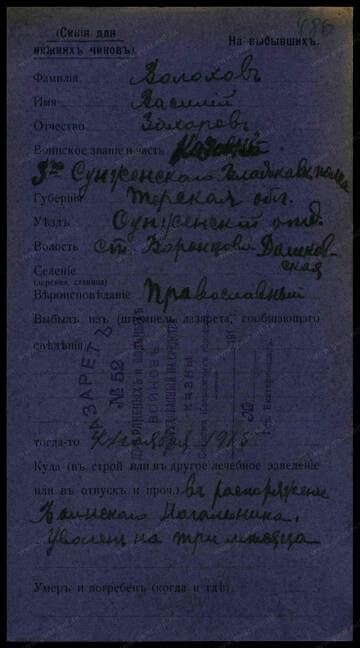 486
(Синія для
нижнихъ чиновъ).
На выбывшихъ.
Фамилія Волоховъ
Имя Василій
Отчество Захаровъ
Воинское званіе и часть Казакъ
3го Сунженского Владикавк. полка
Губернія Терская обл.
Уѣздъ Сунженскій отд.
Волость ст. Воронцово Дашков-
ская
Селеніе
Вѣроисповѣданіе Православный
Выбылъ изъ (штемпель лазарета, сообщающаго
свѣдѣнія)
ЛАЗАРЕТЪ
№ 52
ВОИНОВЪ
КАЗНЫ
тогда-то 4 Ноября 1915
Куда (въ строй или въ другое лечебное заведеніе
или въ отпускъ и проч.) въ распоряженіе
Воинскаго Начальника,
уволен на три мѣсяца
Умеръ и погребенъ (когда и гдѣ)